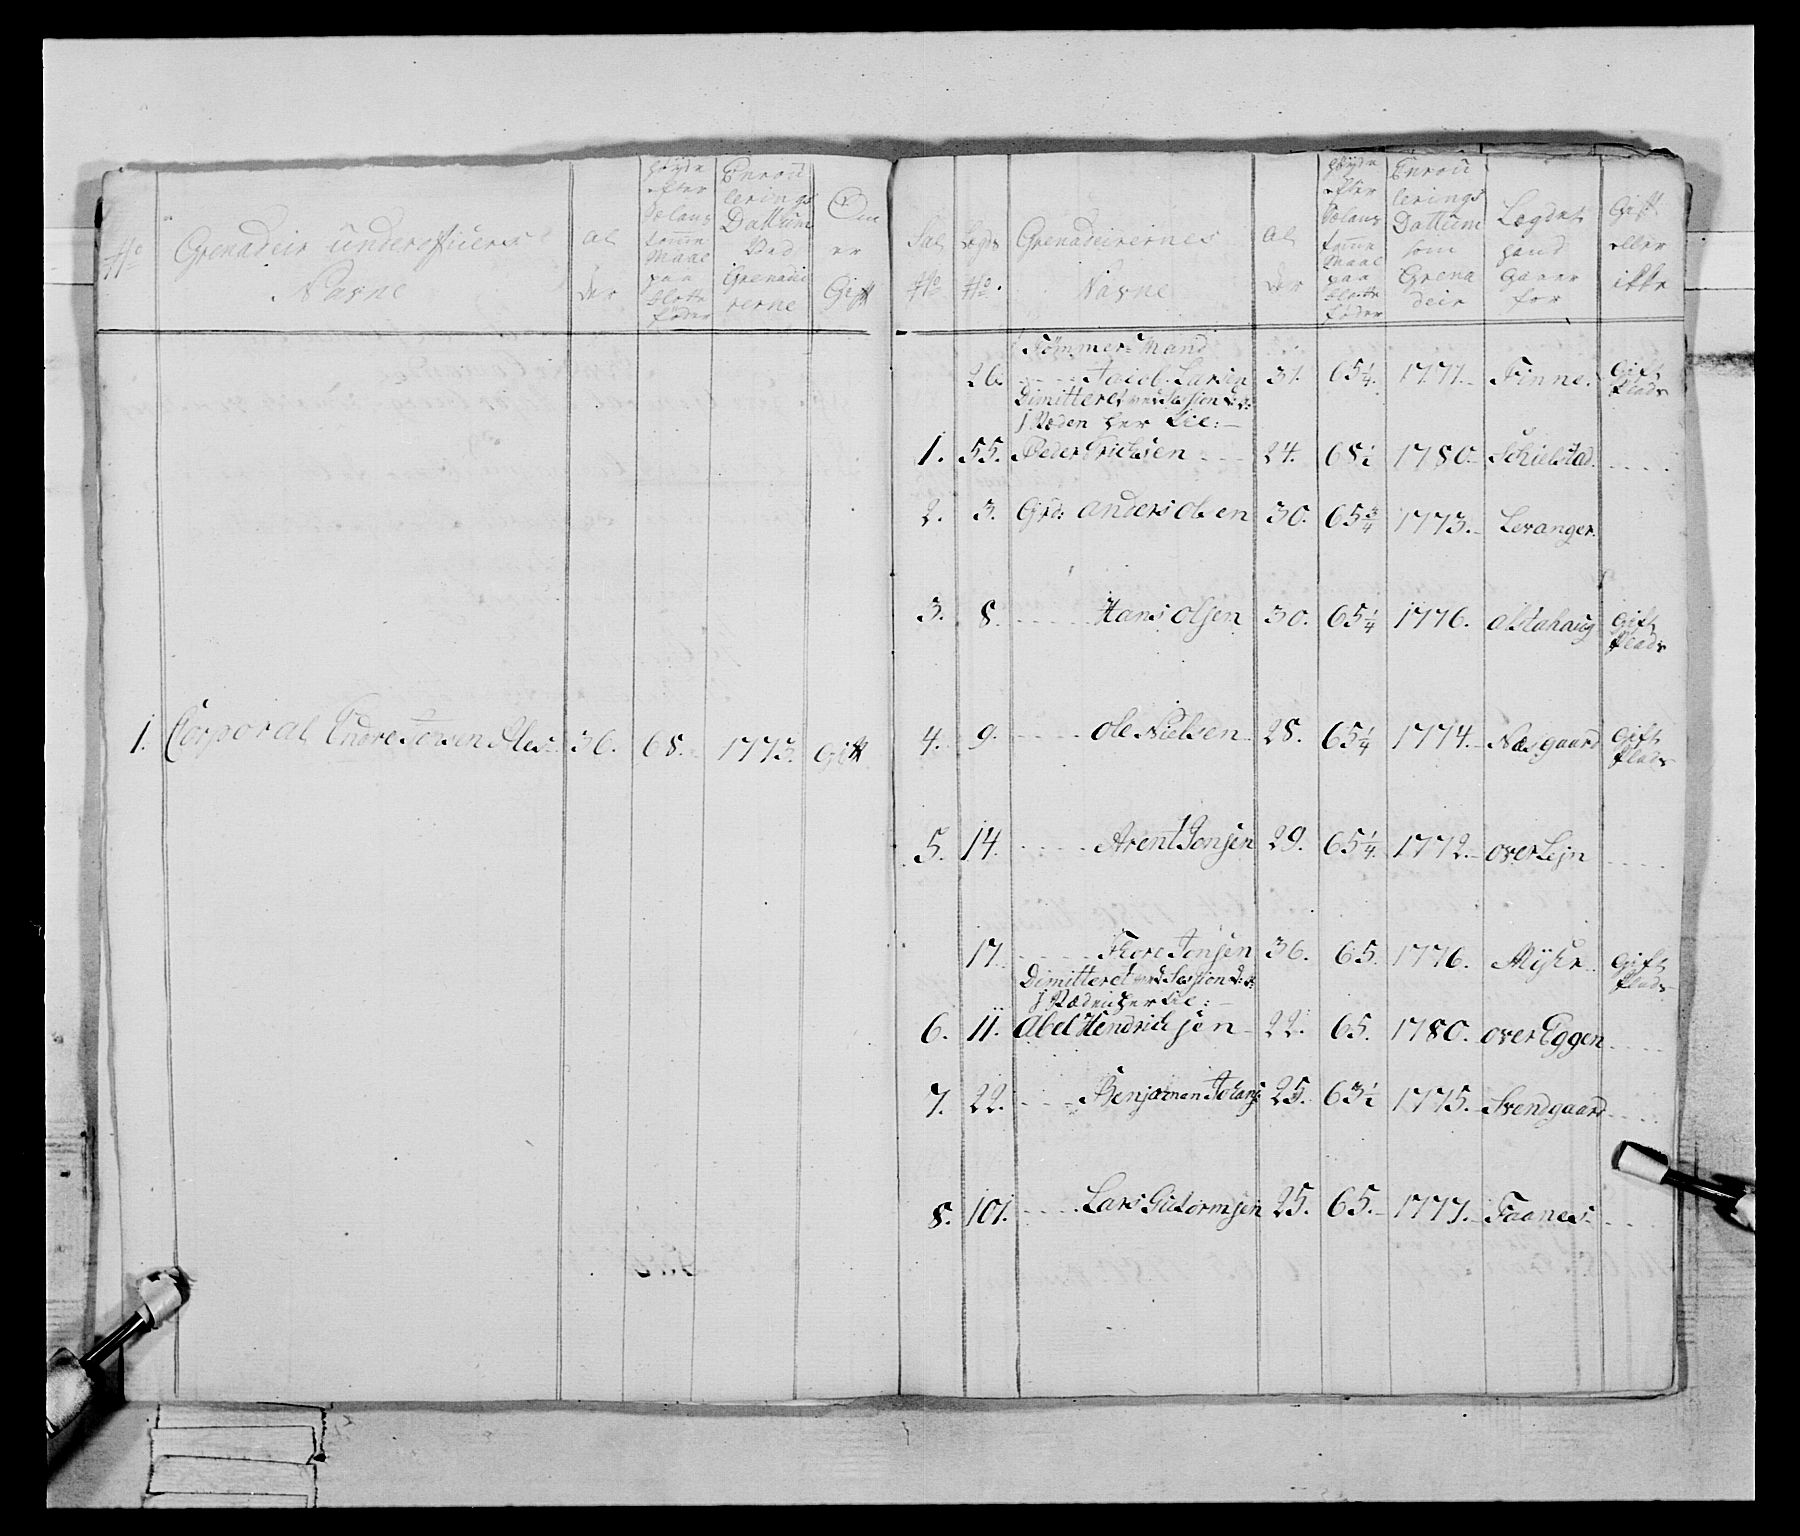 No
Grenadeir Underofficiers
Navne
Al
der
Høyde
efter
Sælans
tomme
Maal
paa
blotte
føder
Enrou
lerings
Dattum
Ved
Grenadi
rerne
Om
er
Gift
1. Corporal Endre Jensen Ales 36. 68. 1773. Gift
Sal
No
Legds
No
Grenadeirernes
Navne
Al
der
Høyde
efter
Sælans
tomme
Maal
paa
blotte
føder
Enrou
lerings
Dattum
som
Grena
deir
Legdet
hand
Gaaer
for
Gift
eller
ikke
Tømmer-Mand
26. Jacob Larsen 31. 65 1/4. 1771. Finne. Gift
Dimitteret ved Session Plads
1. 55. Peder Erichsen 24. 68 1/2 1780. Schielstad.
2. 3. Grd: Anders Olsen 30. 65 3/4 1773. Levanger.
3. 8. Hans Olsen 30. 65 1/4 1776. Alstahaug Gift
Plads
4. 9. Ole Nielsen 28. 65 1/4 1774. Næsgaard Gift
Plads
5. 14. Arent Jonsen 29. 65 1/4. 1772. over Lejn
17. Thore Jonsen 36. 65. 1776. Myhr Gift
Dimitteret ved Session Plads
6. 11. Abel Hendrichsen 22. 65. 1780. over Eggen
7. 22. Benjamen Johans 25. 63 1/2 1775. Svendgaard
8. 101. Lars Gutormsen 25. 65. 1777. Faanes